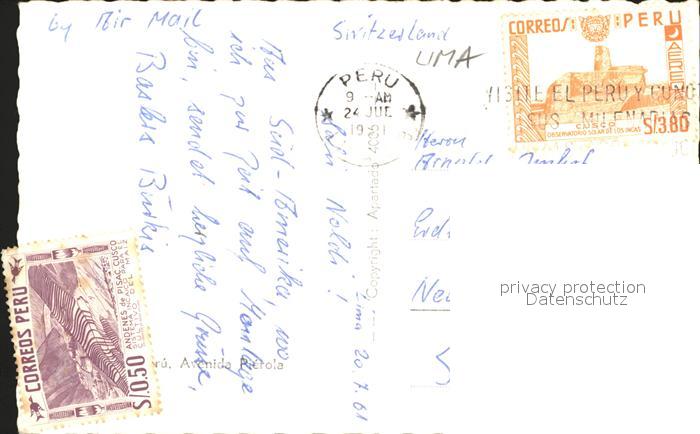 by Air Mail
Switzerland
LIMA
CORREOS PERU
AEREO
CUSCO
OBSERVATORIO SOLAR DE LOS INCAS
S/3.80
PERU
9 - AM
24 JUL
1961
VISITE EL PERU Y CONO
SUS MILENARIAS
Lima 20.7.61
Salü Noldi!
Aus Süd-Amerika, wo
ich zur Zeit auf Montage
bin, sendet herzliche Grüsse,
Herrn
privacy protection
Datenschutz
Copyright: Apartado 4006
rú, Avenida Piérola
CORREOS PERU
ANDENES de PISAC, CUSCO
SISTEMA INCAICO PARA EL
CULTIVO DEL MAIZ
S/0.50